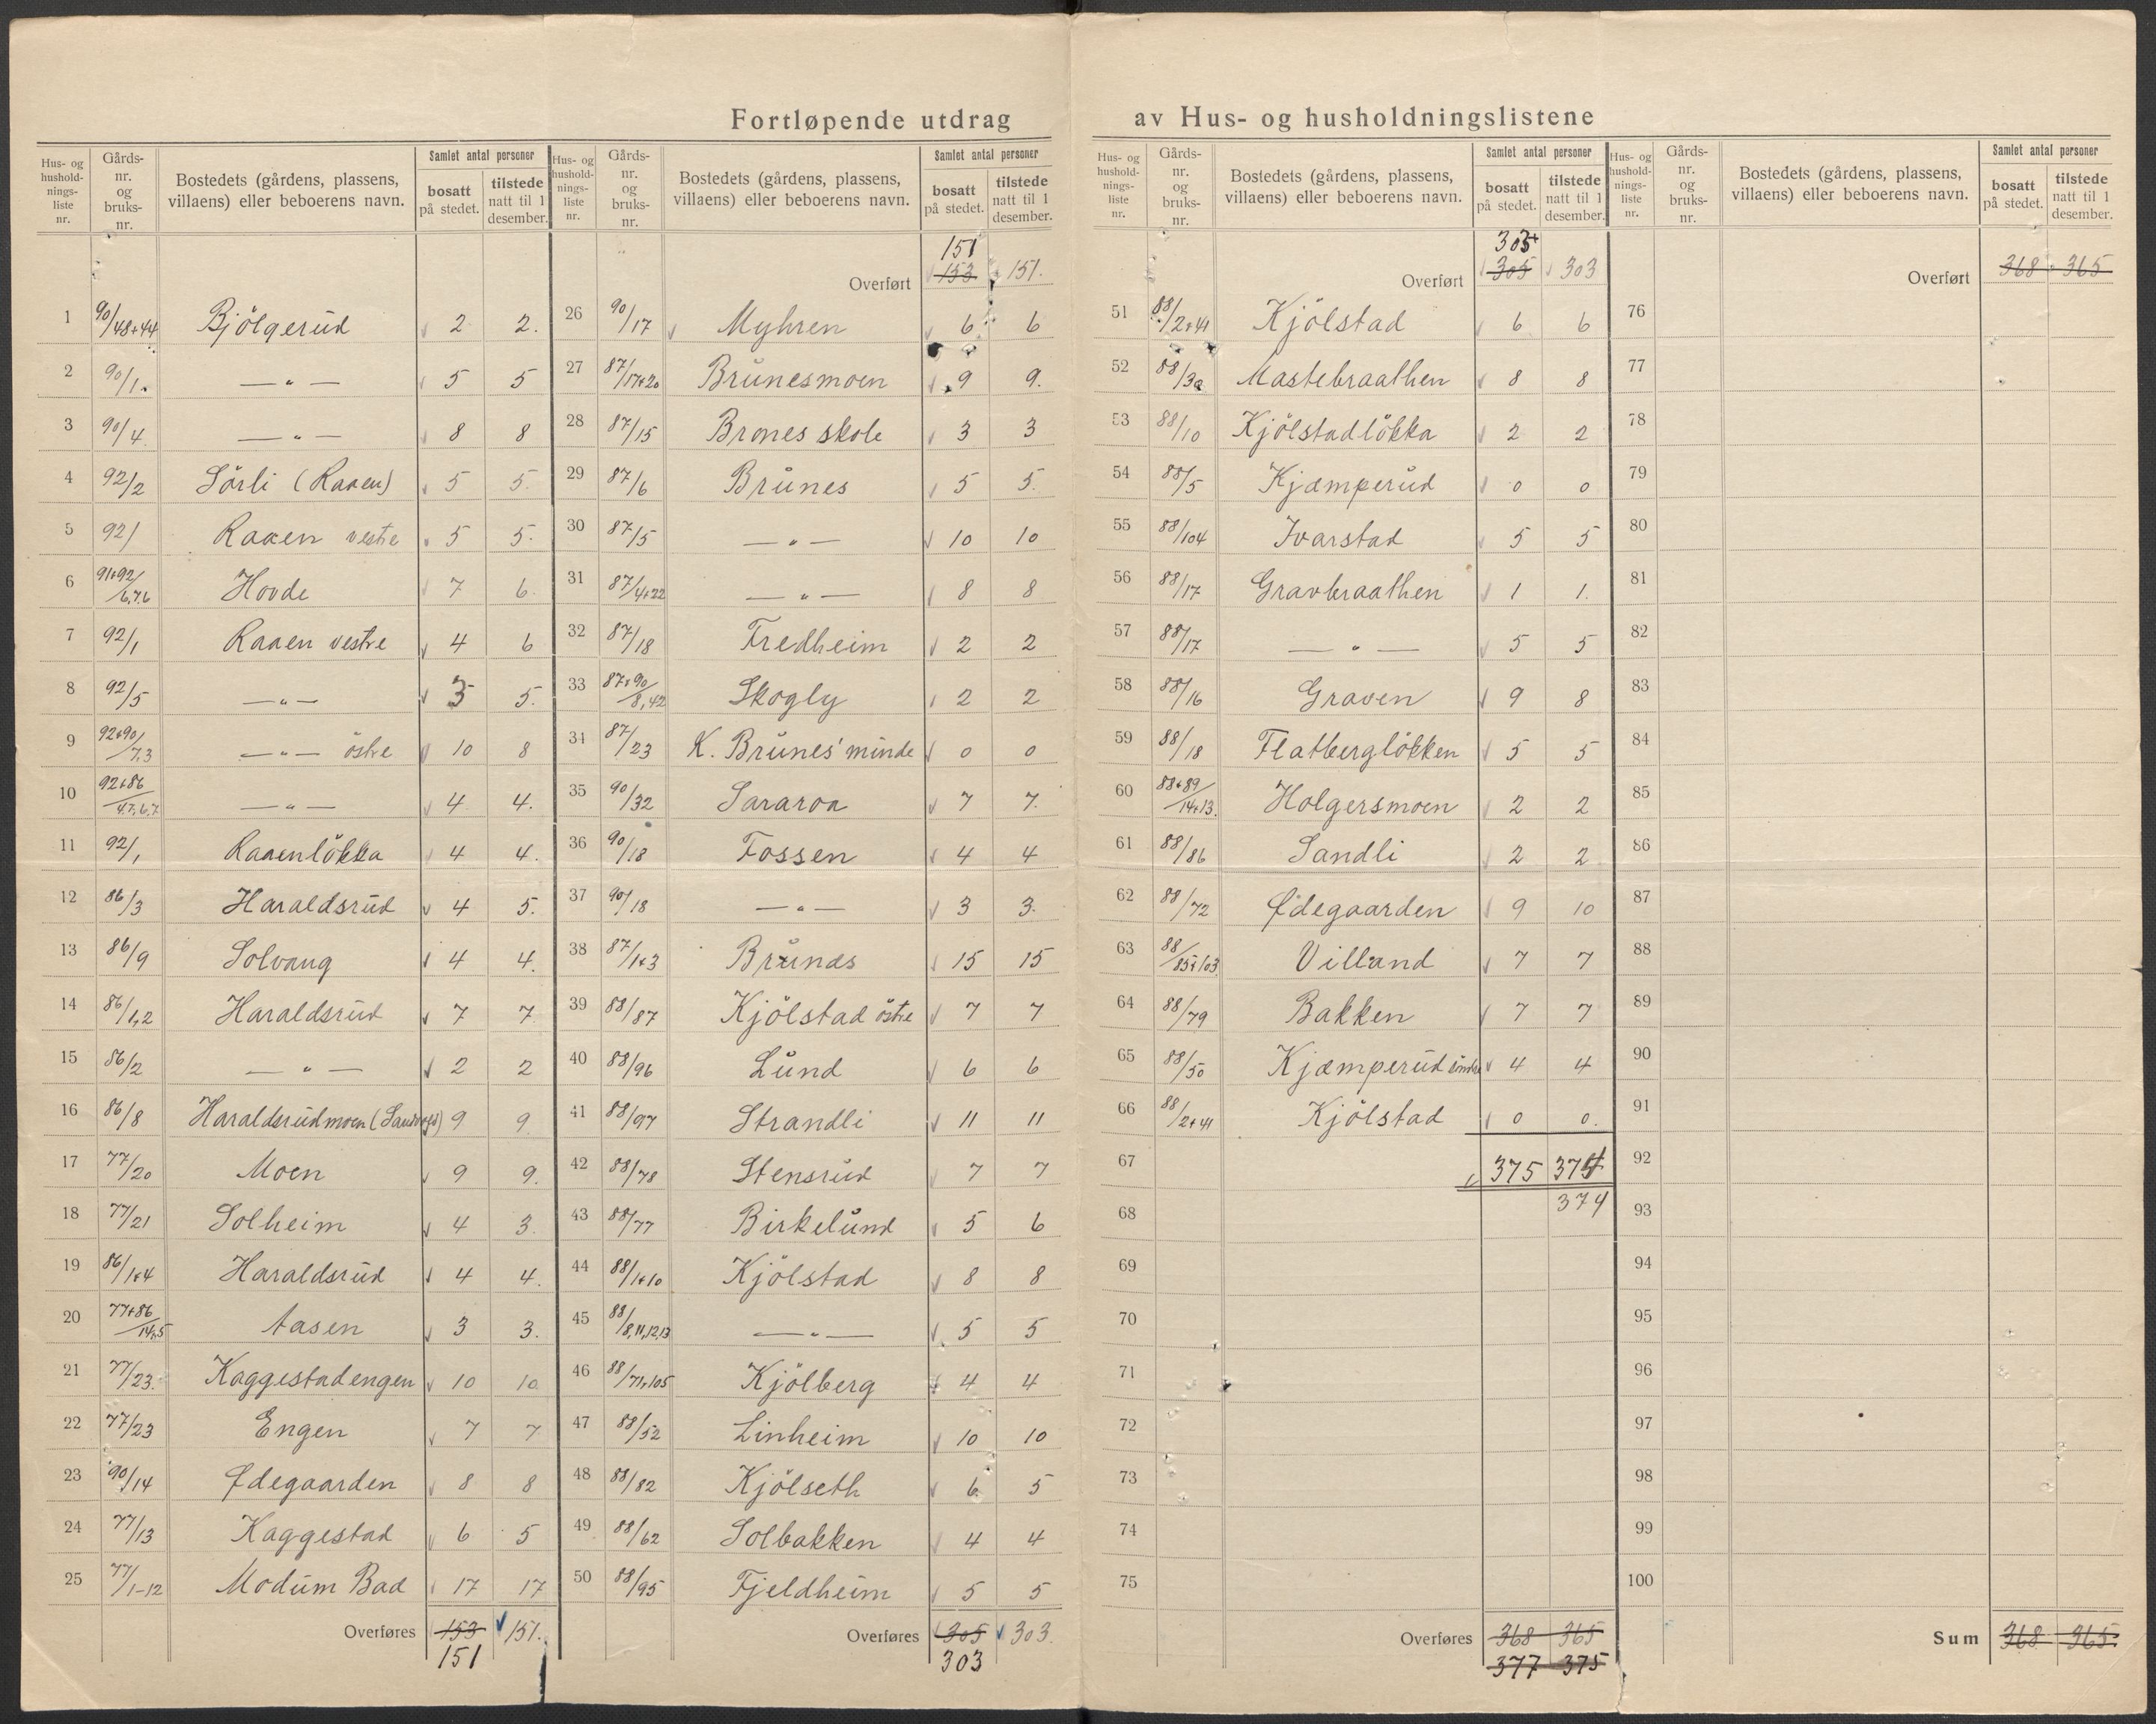 Fortløpende utdrag av Hus- og husholdningslistene
Hus- og husholdnings- liste nr. | Gårds- nr. og bruks- nr. | Bostedets (gårdens, plassens, villaens) eller beboerens navn. | Samlet antal personer | bosatt på stedet. | tilstede natt til 1 desember.
1 90/48+44 Bjölgerud 2 2.
2 90/1. — „ — 5 5
3 90/4 — „ — 8 8
4 92/2 Sörli (Raaen) 5 5.
5 92/ Raaen vestre 5 5.
6 91+92/6,7.6 Hovde 7 6.
7 92/1 Raaen vestre 4 6
8 92/5 — „ — 3 5.
9 92+90/7,3 — „ — östre 10 8
10 92+86/47,6,7 — „ — 4 4.
11 92/1 Raaenlökka 4 4.
12 86/3 Haraldsrud 4 5.
13 86/9 Solvang 4 4.
14 86/1,2 Haraldsrud 7 7
15 86/2 — „ — 2 2
16 86/8 Haraldsrudmoen (Sandvold) 9 9
17 77/20 Moen 9 9.
18 77/21 Solheim 4 3.
19 86/1+4 Haraldsrud 4 4.
20 77+86/14,5 Aasen 3 3.
21 77/23. Kaggestadengen 10 10
22 77/23 Engen 7 7
23 90/14 Ødegaarden 8 8
24 77/13 Kaggestad 6 5
25 77/1-12 Modum Bad 17 17
Overføres 153 151.
151
Hus- og husholdnings- liste nr. | Gårds- nr. og bruks- nr. | Bostedets (gårdens, plassens, villaens) eller beboerens navn. | Samlet antal personer | bosatt på stedet. | tilstede natt til 1 desember.
151
Overført 153 151.
26 90/17 Myhren 6 6
27 87/17+20 Brunesmoen 9 9.
28 87/15 Brones skole 3 3
29 87/6 Brunes 5 5.
30 87/5 — „ — 10 10
31 87/4+22 — „ — 8 8
32 87/18 Fredheim 2 2
33 87+90/8,42 Skogly 2 2
34 87/23 K. Brunes' minde 0 0
35 90/32 Sararoa 7 7.
36 90/18 Fossen 4 4
37 90/18 — „ — 3 3.
38 87/1+3 Brunes 15 15
39 88/87 Kjölstad östre 7 7
40 88/96 Lund 6 6
41 88/97 Strandli 11 11
42 88/78 Stensrud 7 7
43 88/77 Birkelund 5 6
44 88/1+10 Kjölstad 8 8
45 88/8,11,12,13 — „ — 5 5
46 88/71+105 Kjölberg 4 4
47 88/52 Linheim 10 10
48 88/82 Kjölseth 6 5
49 88/62 Solbakken 4 4
50 88/95 Fjeldheim 5 5
Overføres 305 303.
303
Hus- og husholdnings- liste nr. | Gårds- nr. og bruks- nr. | Bostedets (gårdens, plassens, villaens) eller beboerens navn. | Samlet antal personer | bosatt på stedet. | tilstede natt til 1 desember.
Overført 305 303
51 88/2+41 Kjölstad 6 6
52 88/3a Mastebraathen 8 8
53 88/10 Kjölstadlökka 2 2
54 88/5 Kjæmperud 0 0
55 88/104 Ivarstad 5 5
56 88/17 Gravbraathen 1 1.
57 88/17 — „ — 5 5
58 88/16 Graven 9 8
59 88/18 Flatberglökken 5 5
60 88+89/14+13. Holgersmoen 2 2
61 88/86 Sandli 2 2
62 88/72 Ødegaarden 9 10
63 88/85+103. Villand 7 7
64 88/79 Bakken 7 7
65 88/50 Kjæmperud 4 4
66 88/2+41 Kjölstad 0 0.
67 375 374
68 374
69
70
71
72
73
74
75
Overføres 368 365
377 375
Hus- og husholdnings- liste nr. | Gårds- nr. og bruks- nr. | Bostedets (gårdens, plassens, villaens) eller beboerens navn. | Samlet antal personer | bosatt på stedet. | tilstede natt til 1 desember.
Overført 368 365
76
77
78
79
80
81
82
83
84
85
86
87
88
89
90
91
92
93
94
95
96
97
98
99
100
Sum 368 365